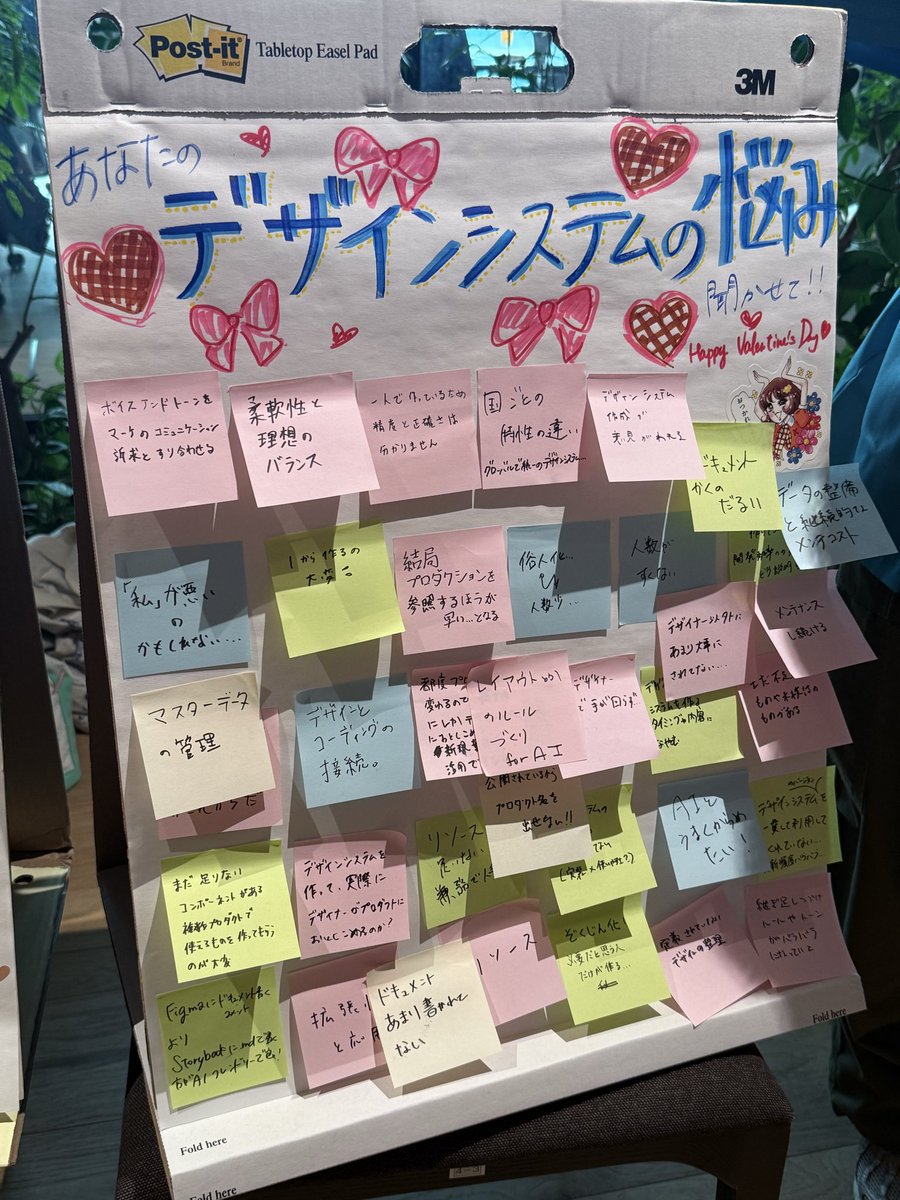 Post-it
Brand
Tabletop Easel Pad
3M
あなたの
デザインシステムの悩み
聞かせて!!
Happy Valentine's Day
ボイスアンドトーンを
マーケのコミュニケーション
訴求とすり合わせる
柔軟性と
理想の
バランス
一人で作っているため
精度と正確さは
分かりません
国ごとの
特性の違い
グローバルで統一のデザインシステム...
デザインシステム
作成で
意見がわれる
ドキュメント
かくの
だるい
データの整備
と継続的な
メンテコスト
「私」が悪い
の
かもしれない...
1から作るの
大変!
結局
プロダクションを
参照するほうが
早い...となる
俗人化...
人数が
すくない
デザイナー以外に
あまり大事に
されてない...
メンテナンス
し続ける
マスターデータ
の管理
デザインと
コーディングの
接続。
レイアウトとかの
のルール
づくり
for AI
デザイナー
で手が回らず...
公開されているから
プロダクト名を
出せない!!
リソース
AIと
うまくからめ
たい!
デザインシステムを
一貫して利用して
くれていない...
まだ足りない
コンポーネントがある
複数プロダクトで
使えるものを作ってもらう
のが大変
デザインシステムを
作って、実際に
デザイナーがプロダクトに
おとしこめるのか?
ぞくじん化
必要だと思う人
だけが作る...
定義されていない
デザインの管理
継ぎ足しつづけ
ルールやトーン
がバラバラ
になっていた
Figmaにドキュメント書く
コメント
より
Storybookに.mdで書く
方がAIフレンドリーで良い!
ドキュメント
あまり書かれて
ない
リソース
Fold here
Fold here
Fold here
4-3